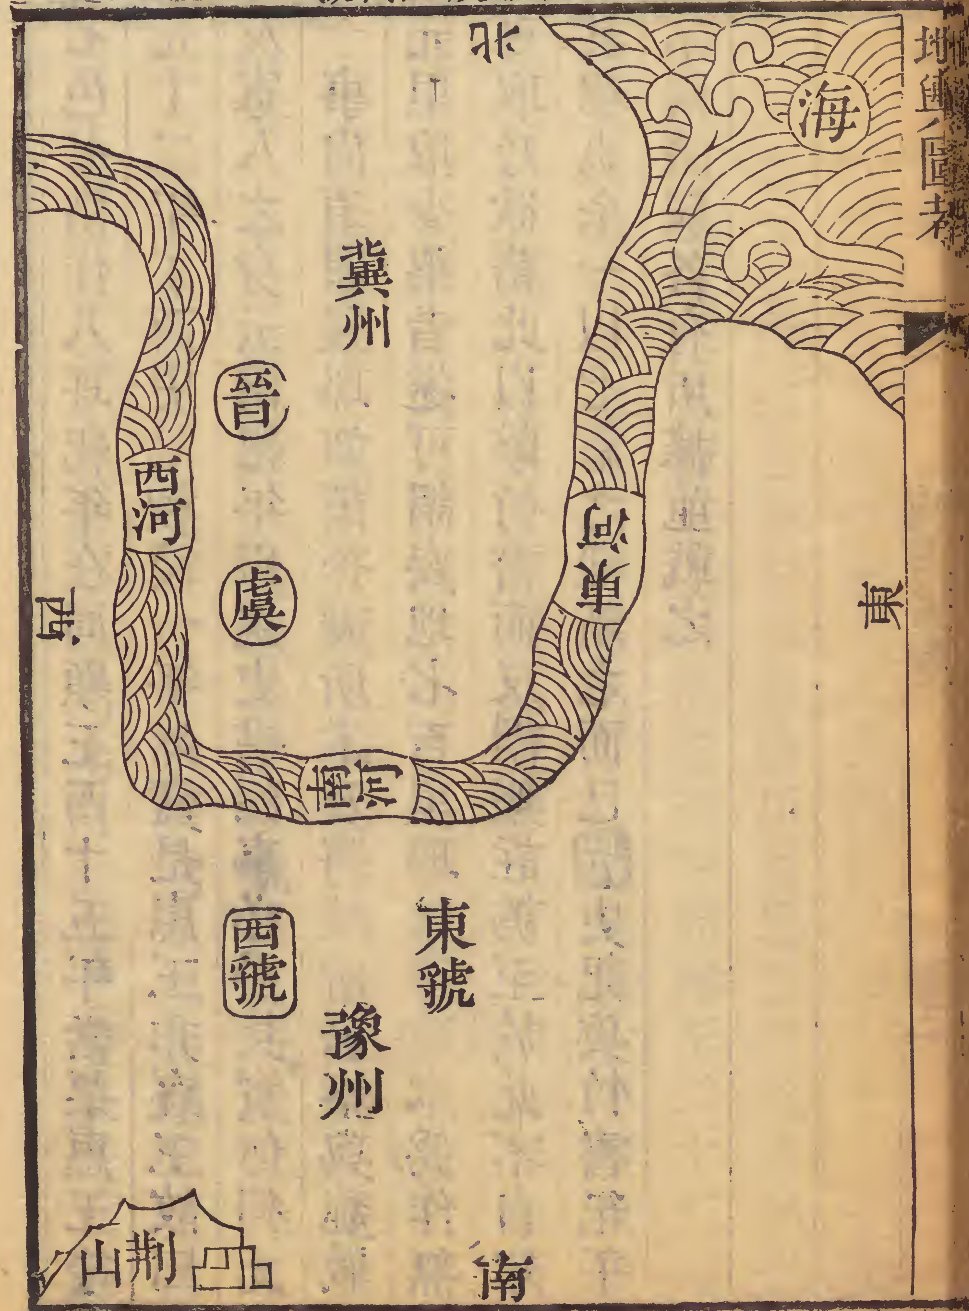 地輿圖考
北
海
冀州
晉
西河
虞
東河
西
東
南河
西虢
東虢
豫州
荆山
南